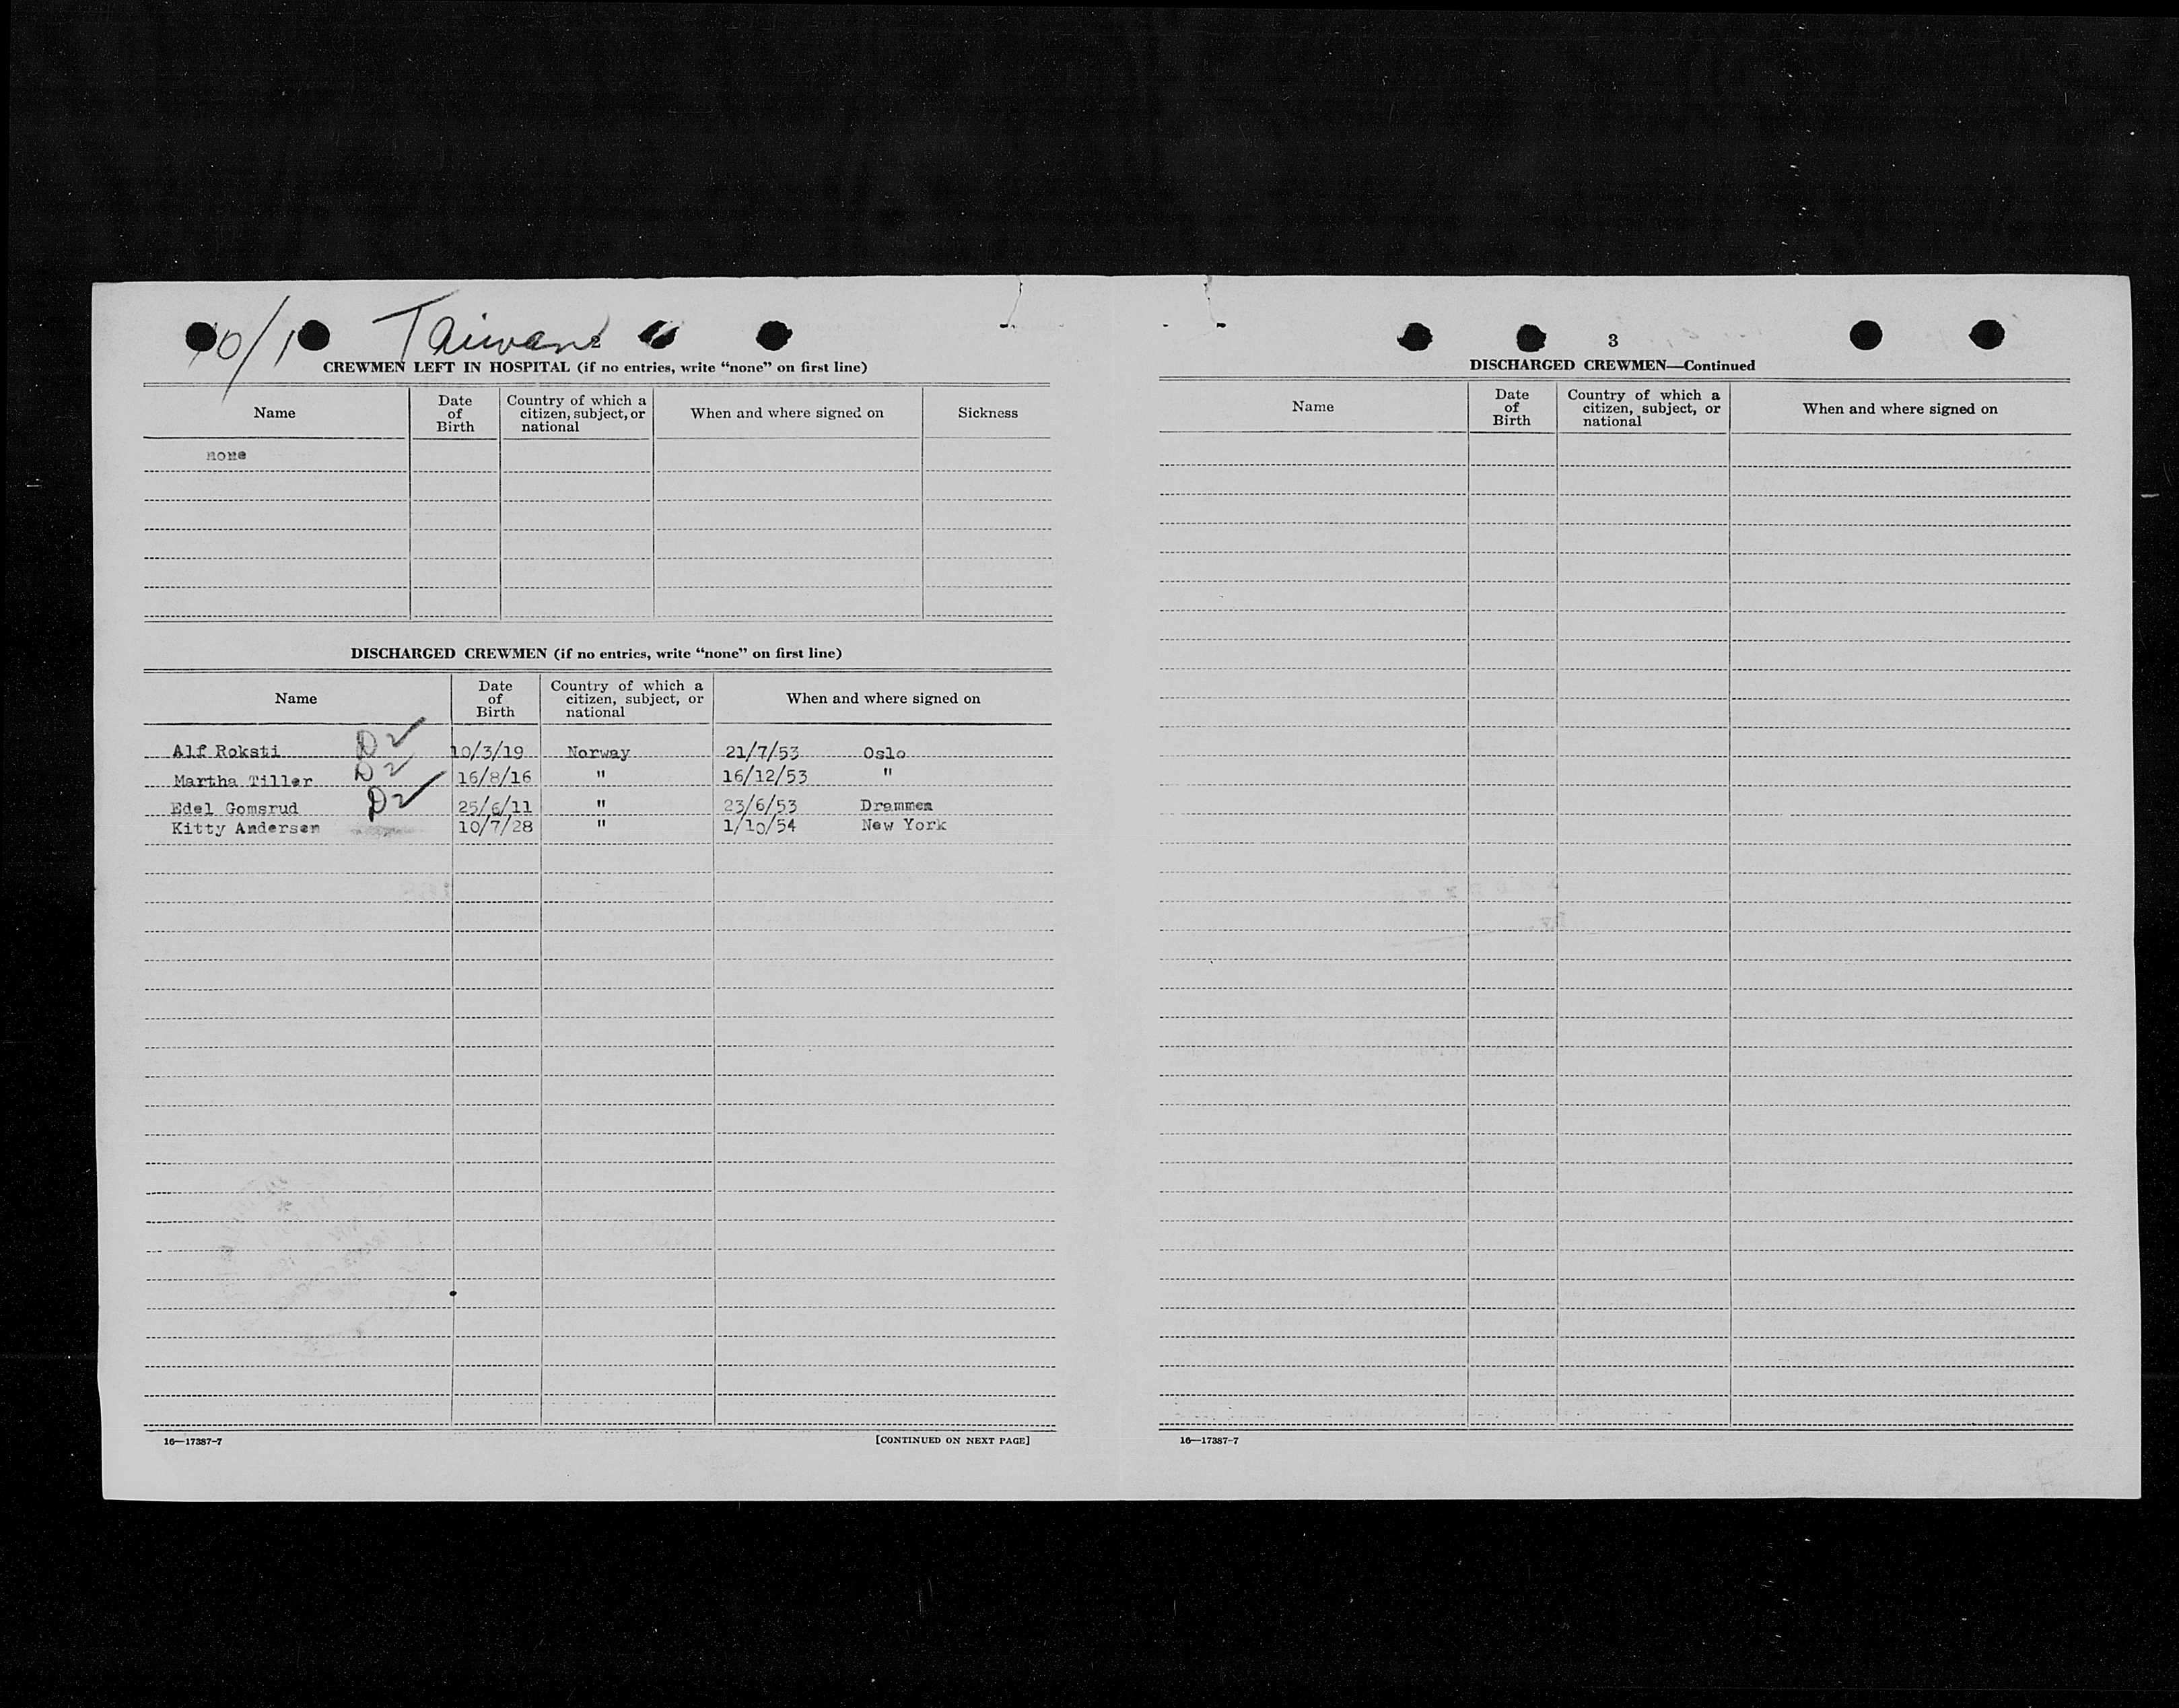 10/1 Taiwan
CREWMEN LEFT IN HOSPITAL (if no entries, write “none” on first line)
Name
Date of Birth
Country of which a citizen, subject, or national
When and where signed on
Sickness
none
DISCHARGED CREWMEN (if no entries, write “none” on first line)
Name
Date of Birth
Country of which a citizen, subject, or national
When and where signed on
Alf Roksti D2 ✓ 10/3/19 Norway 21/7/53 Oslo
Martha Tiller D2 16/8/16 " 16/12/53 "
Edel Gomsrud D2 ✓ 25/6/11 " 23/6/53 Drammen
Kitty Andersen 10/7/28 " 1/10/54 New York
16—17387-7
[CONTINUED ON NEXT PAGE]
3
DISCHARGED CREWMEN—Continued
Name
Date of Birth
Country of which a citizen, subject, or national
When and where signed on
16—17387-7